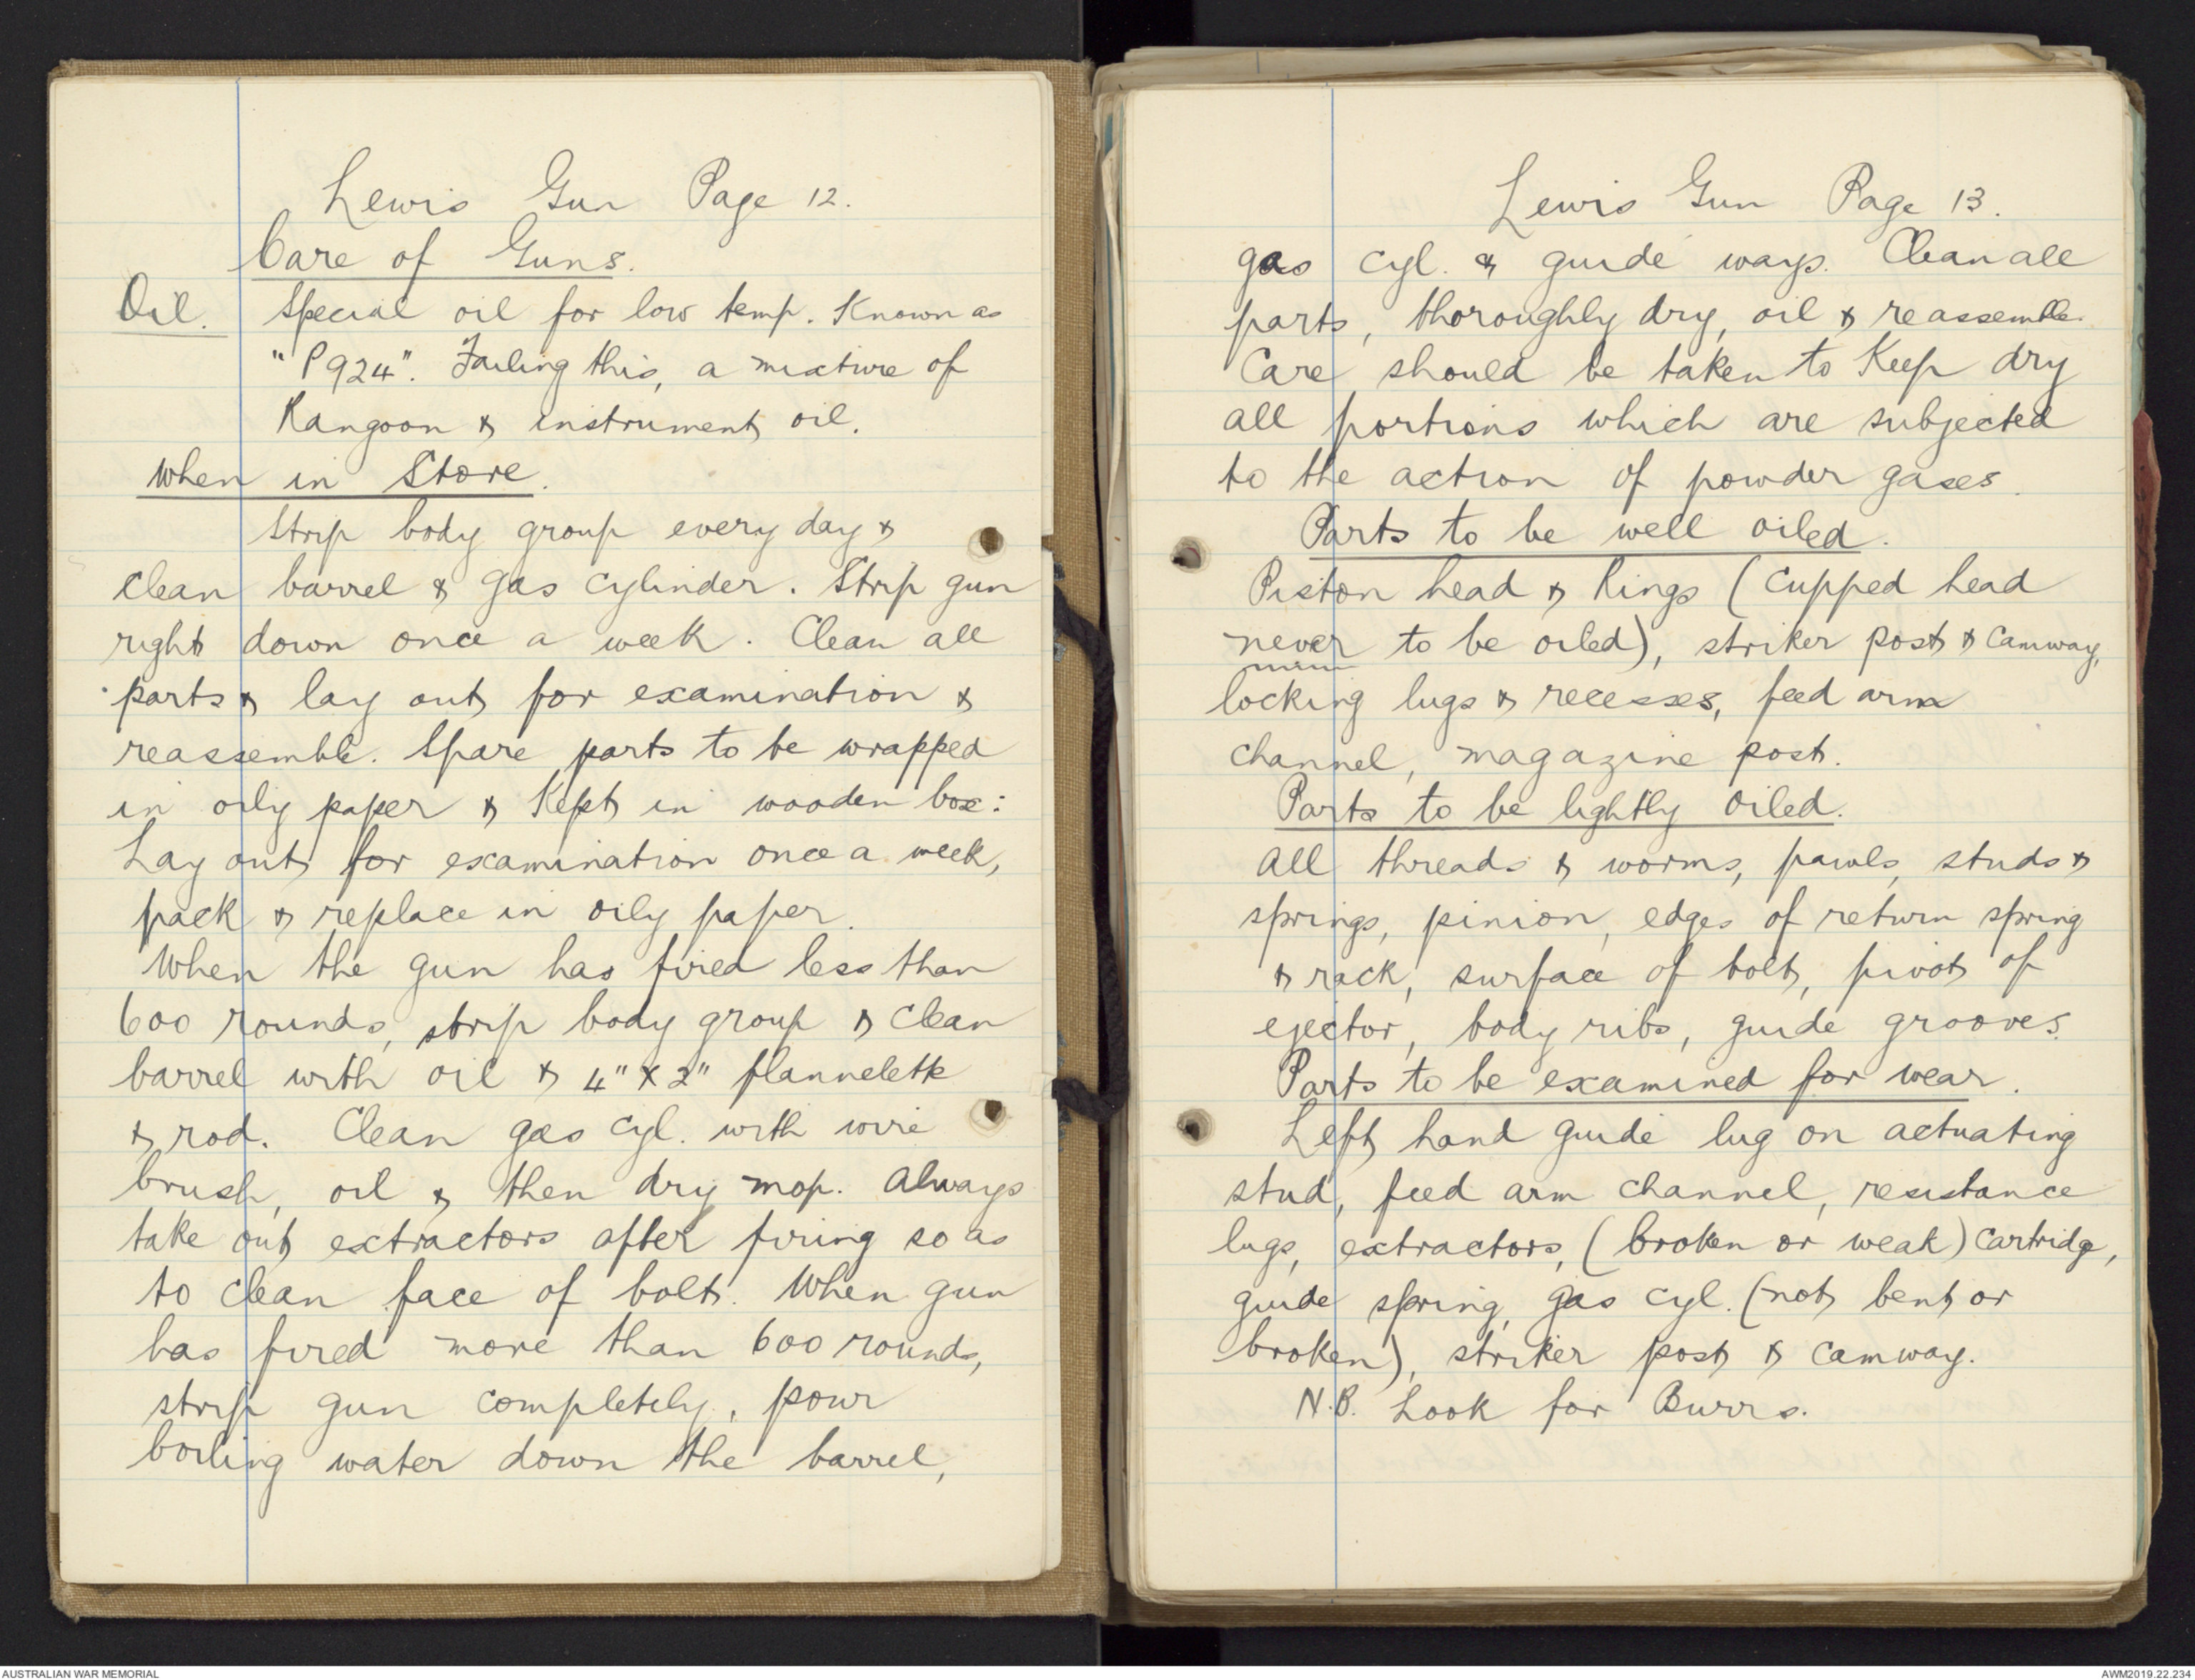 Lewis Gun Page 12.
Care of Guns.
Oil. Special oil for low temp. Known as
"P924". Failing this, a mixture of
Rangoon & instrument oil.
When in Store.
Strip body group every day &
clean barrel & gas cylinder. Strip gun
right down once a week. Clean all
parts & lay out for examination &
reassemble. Spare parts to be wrapped
in oily paper & Kept in wooden box:
Lay out for examination once a week,
pack & replace in oily paper.
When the gun has fired less than
600 rounds, strip body group & clean
barrel with oil & 4" x 2" flannelette
& rod. Clean gas cyl. with wire
brush, oil & then dry mop. Always
take out extractors after firing so as
to clean face of bolt. When gun
has fired more than 600 rounds,
strip gun completely, pour
boiling water down the barrel,
Lewis Gun Page 13.
gas cyl. & guide ways. Clean all
parts, thoroughly dry, oil & reassemble.
Care should be taken to Keep dry
all portions which are subjected
to the action of powder gases.
Parts to be well oiled.
Piston head & Rings (cupped head
never to be oiled), striker post & camway,
locking lugs & recesses, feed arm
channel, magazine post.
Parts to be lightly oiled.
All threads & worms, pawls, studs &
springs, pinion, edges of return spring
& rack, surface of bolt, pivot of
ejector, body ribs, guide grooves.
Parts to be examined for wear.
Left hand guide lug on actuating
stud, feed arm channel, resistance
lugs, extractors, (broken or weak) Cartridge,
guide spring, gas cyl. (not bent or
broken), striker post & camway.
N.B. Look for Burrs.
AUSTRALIAN WAR MEMORIAL
AWM2019.22.234